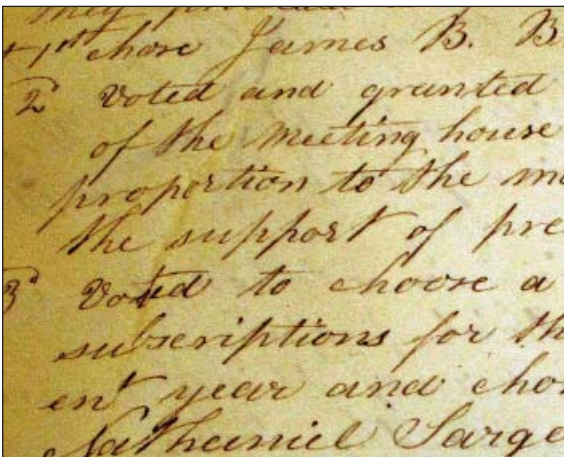 they
1st chose James B. B
2 Voted and granted
of the Meeting house
proportion to the
the support of pre
3d Voted to choose a
subscriptions for th
ent year and cho
Nathaniel Sarge